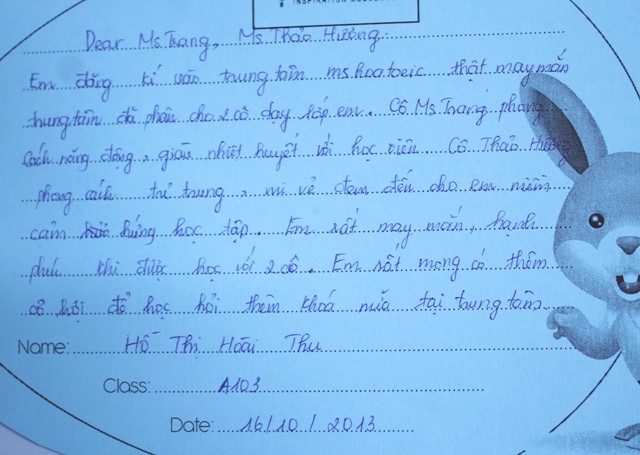 INSPIRATION
Dear Ms Trang, Ms Thảo Hương
Em đăng kí vào trung tâm mshoatoeic thật may mắn
trung tâm đã phân cho 2 cô dạy lớp em. Cô Ms Trang phong
cách năng động, giàu nhiệt huyết với học viên. Cô Thảo Hương
phong cách trẻ trung, vui vẻ đem đến cho em niềm
cảm hứng học tập. Em rất may mắn, hạnh
phúc khi được học với 2 cô. Em rất mong có thêm
cơ hội để học hỏi thêm khoá nữa tại trung tâm.
Name: Hồ Thị Hoài Thu
Class: A103
Date: 16/10/2013